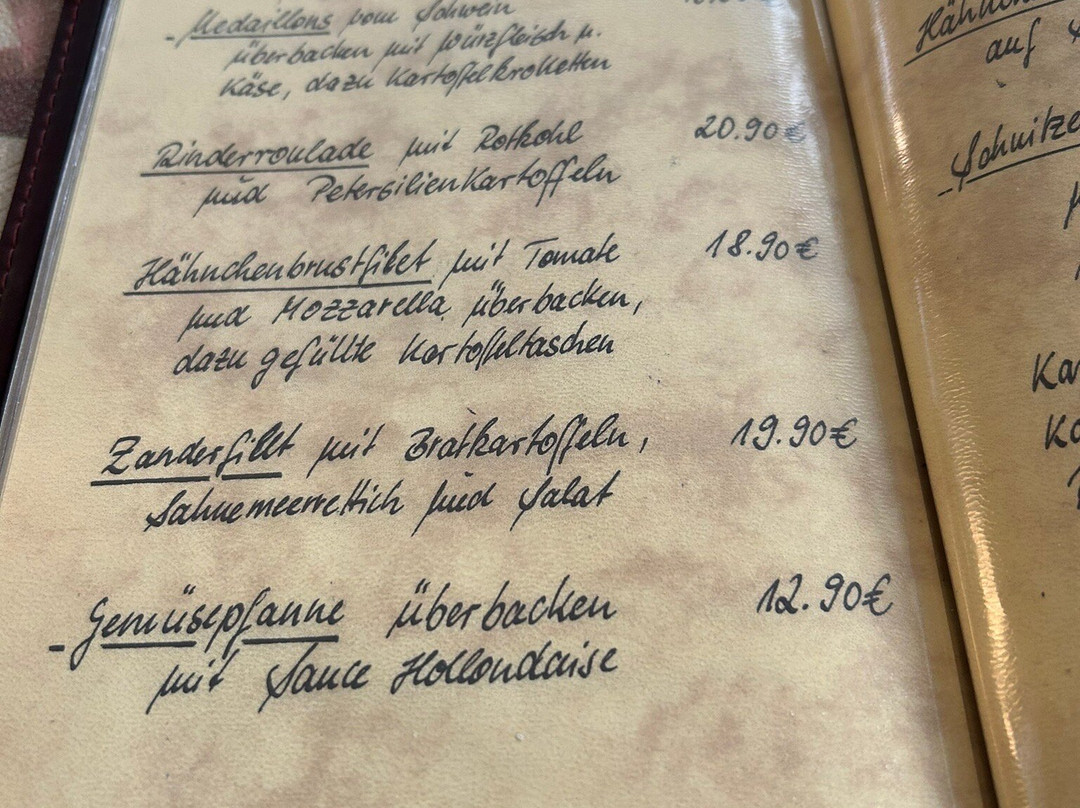 - Medaillons vom Schwein
überbacken mit Würzfleisch u.
Käse, dazu Kartoffelkroketten
Rinderroulade mit Rotkohl 20.90€
und Petersilienkartoffeln
Hähnchenbrustfilet mit Tomate 18.90€
und Mozzarella überbacken,
dazu gefüllte Kartoffeltaschen
Zanderfilet mit Bratkartoffeln, 19.90€
Sahnemeerrettich und Salat
- Gemüsepfanne überbacken 12.90€
mit Sauce Hollondaise
auf